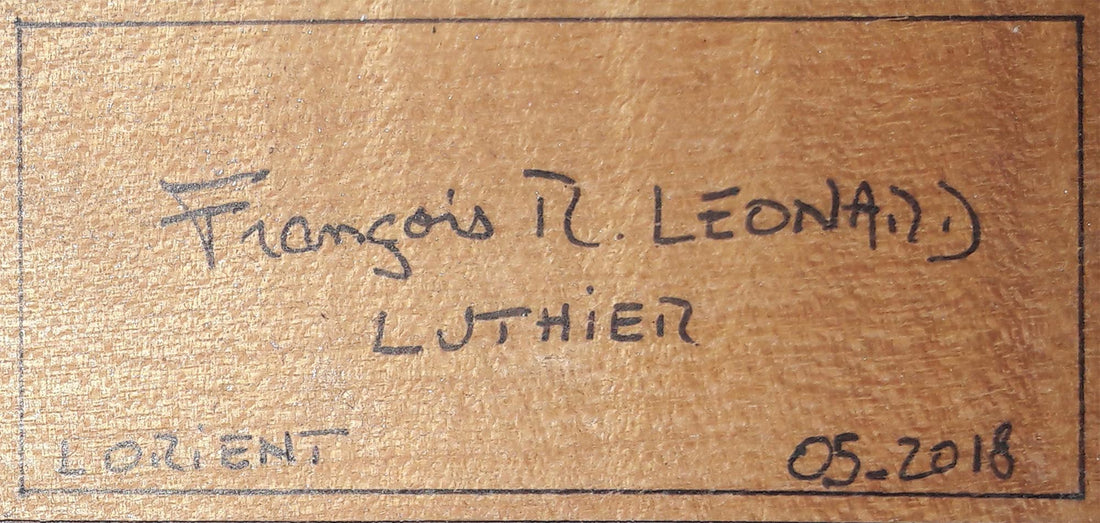 François R. LEONARD
LUTHiER
LORiENT
05-2018